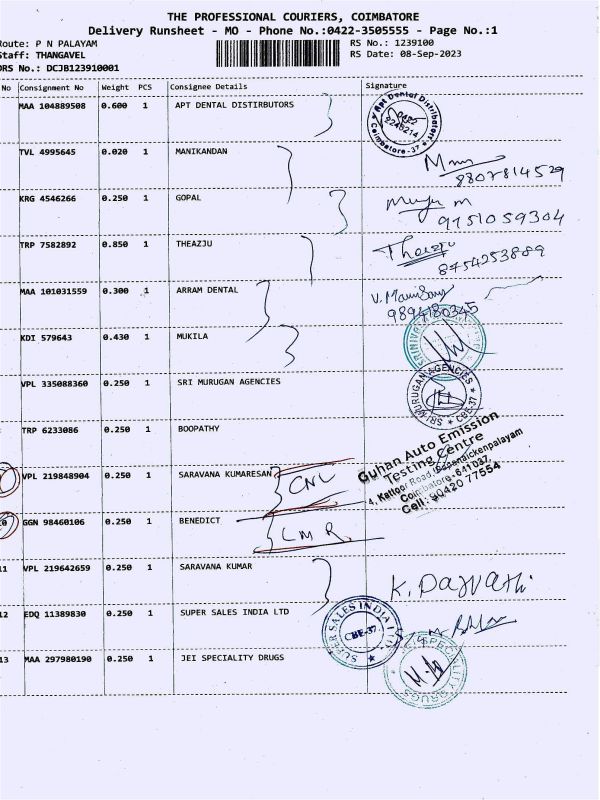 THE PROFESSIONAL COURIERS, COIMBATORE
Delivery Runsheet - MO - Phone No.:0422-3505555 - Page No.:1
Route: P N PALAYAM
RS No.: 1239100
Staff: THANGAVEL
RS Date: 08-Sep-2023
DRS No.: DCJB123910001
No Consignment No Weight PCS Consignee Details Signature
MAA 104889508 0.600 1 APT DENTAL DISTIRBUTORS
Apt Dental Distributors
0422
2246214
Coimbatore-37
TVL 4995645 0.020 1 MANIKANDAN
8807814529
KRG 4546266 0.250 1 GOPAL
9751059304
TRP 7582892 0.850 1 THEAZJU
Theazju
8754253889
MAA 101031559 0.300 1 ARRAM DENTAL
9894180345
KDI 579643 0.430 1 MUKILA
VPL 335088360 0.250 1 SRI MURUGAN AGENCIES
SRI MURUGAN AGENCIES CBE-37
TRP 6233086 0.250 1 BOOPATHY
Guhan Auto Emission
Testing Centre
4, Kattoor Road,
Coimbatore-641037.
Cell: 90420 77554
VPL 219848904 0.250 1 SARAVANA KUMARESAN
CNL
GGN 98460106 0.250 1 BENEDICT
LMR
11 VPL 219642659 0.250 1 SARAVANA KUMAR
K. Parvathi
12 EDQ 11389830 0.250 1 SUPER SALES INDIA LTD
SUPER SALES INDIA LTD
CBE-37
13 MAA 297980190 0.250 1 JEI SPECIALITY DRUGS
SPECIALITY DRUGS